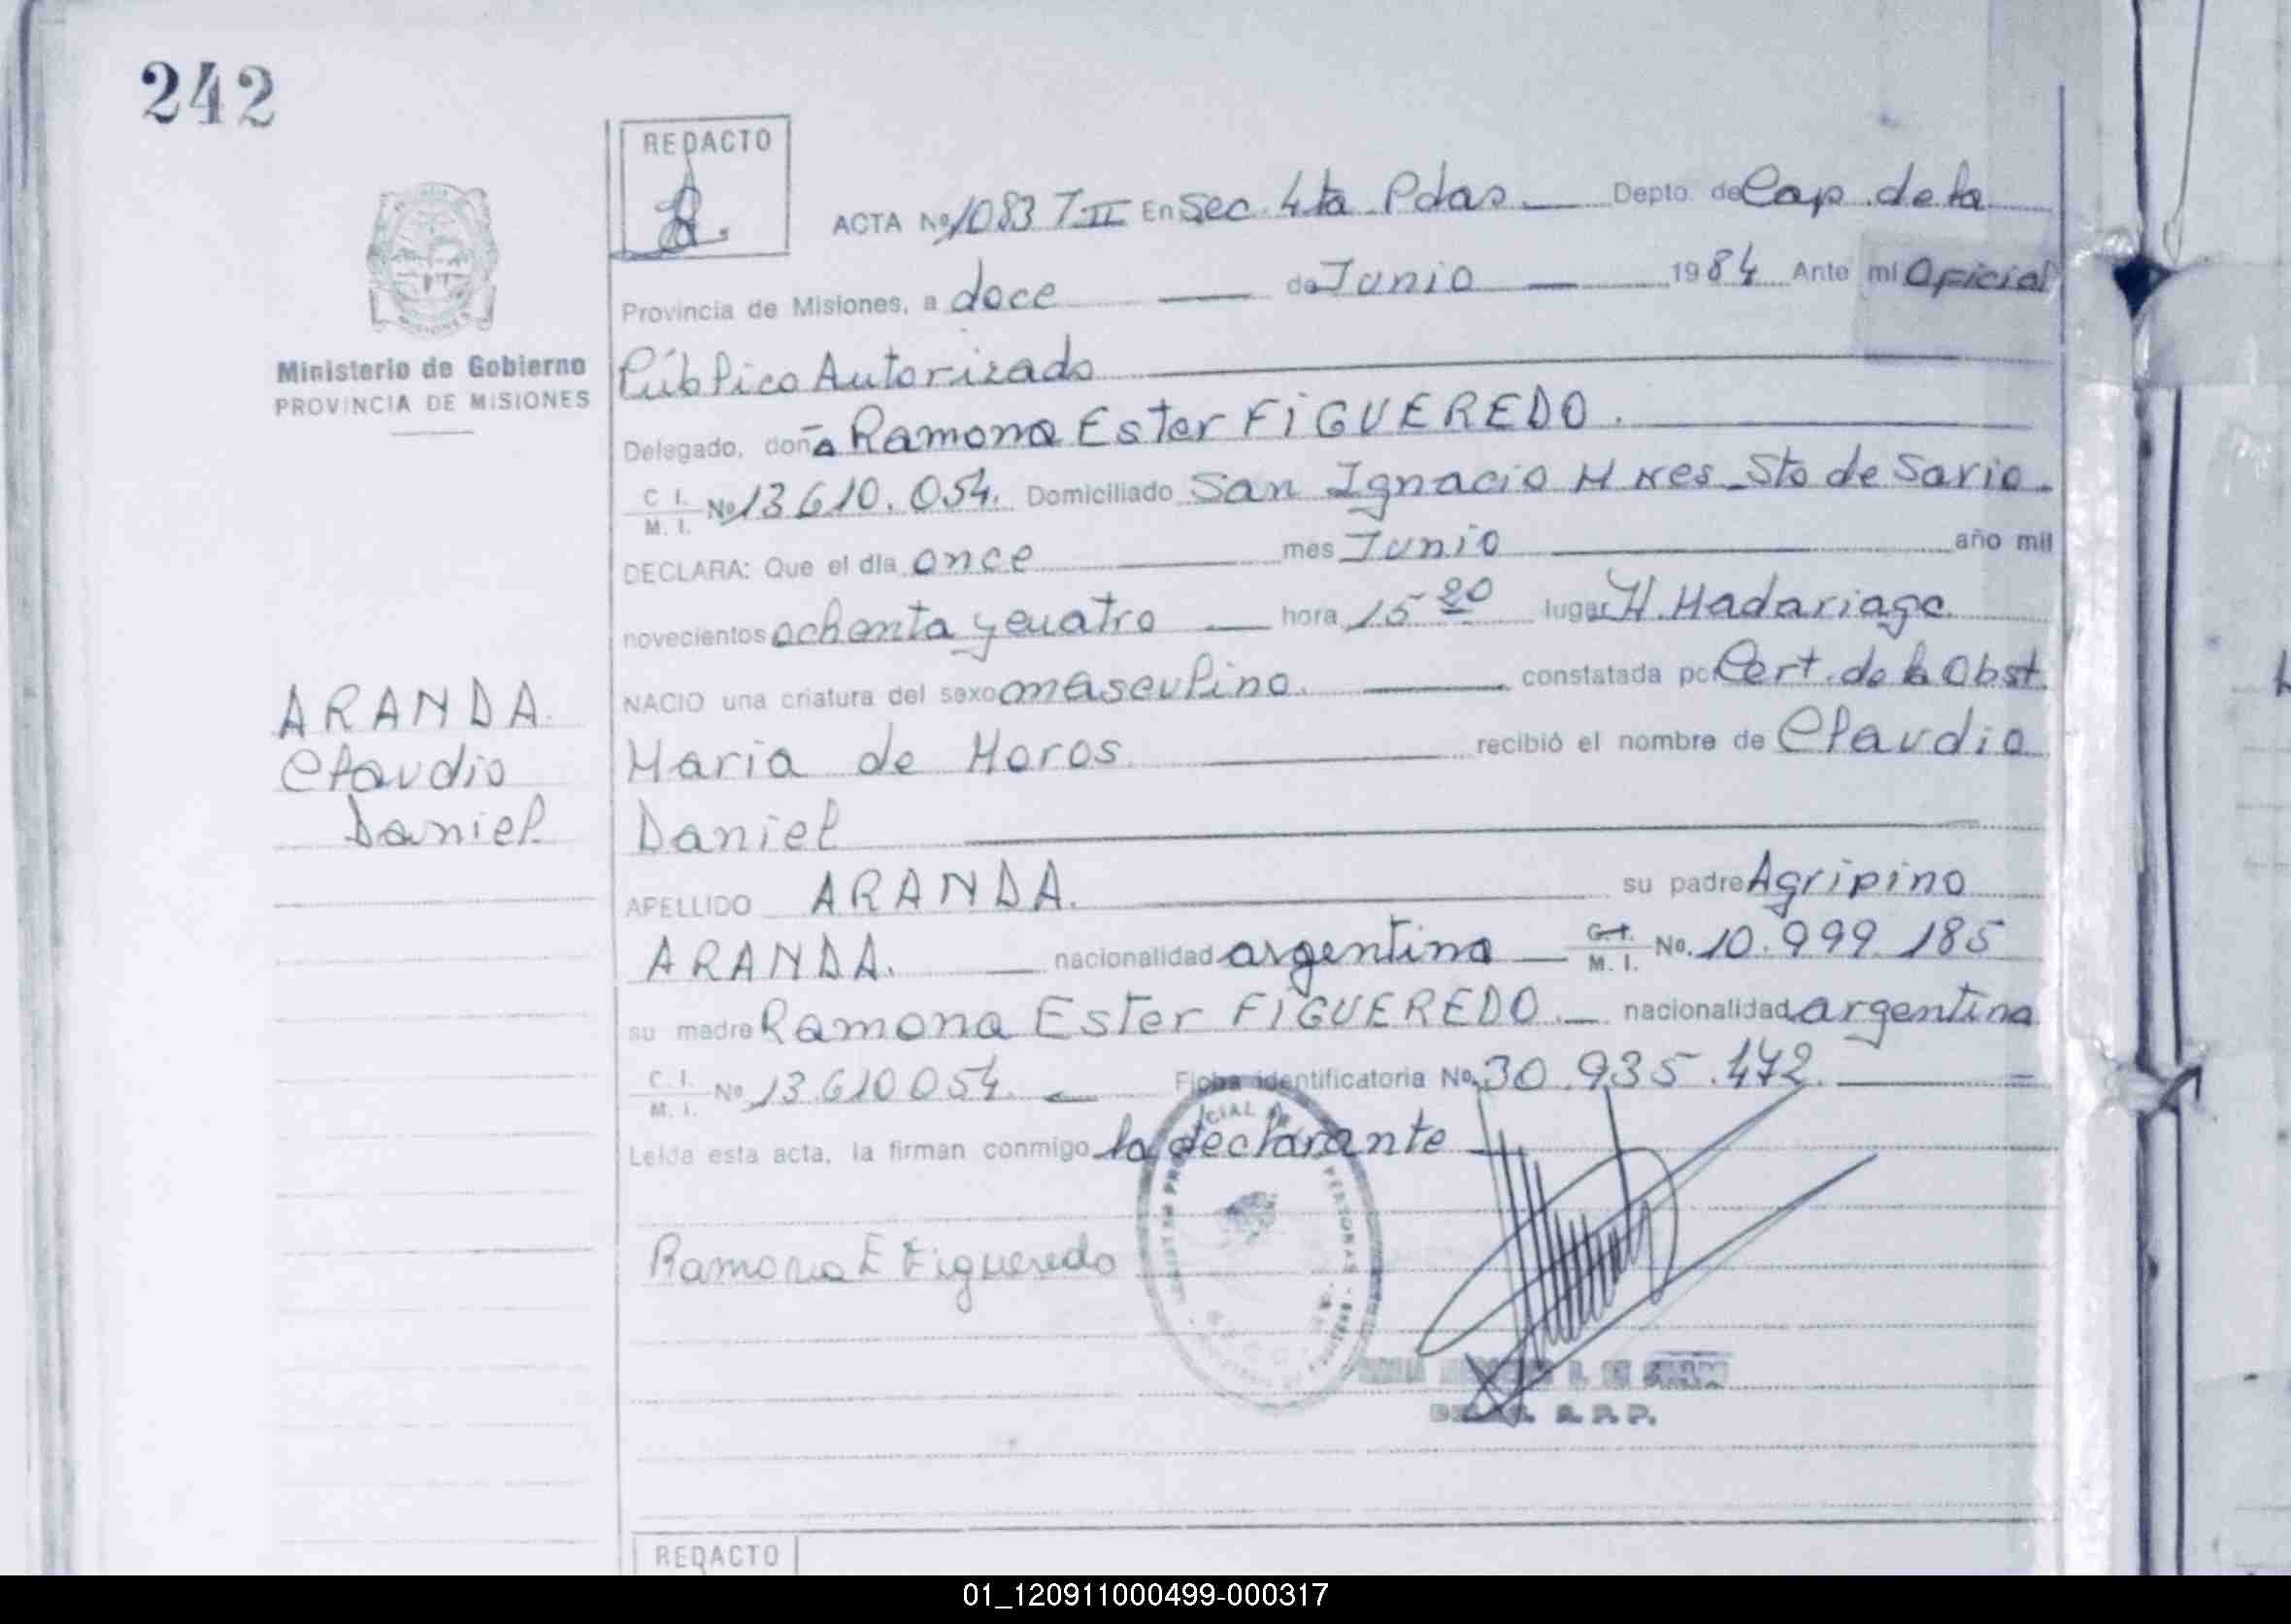 242
REDACTO
ACTA Nº 1083 T II En Sec. 4ta Pdas. Depto. de Cap. de la
Provincia de Misiones, a doce de Junio 1984 Ante mi Oficial
Ministerio de Gobierno
PROVINCIA DE MISIONES
Público Autorizado
Delegado, doña Ramona Ester FIGUEREDO.
C I. M. I. Nº 13.610.054. Domiciliado San Ignacio
DECLARA: Que el día once mes Junio año mil
novecientos ochenta y cuatro hora 15 20 lugar H. Madariaga
NACIO una criatura del sexo masculino. constatada po Cert. de la Obst.
ARANDA.
Claudio
Daniel
Maria de Moros. recibió el nombre de Claudio
Daniel
APELLIDO ARANDA. su padre Agripino
ARANDA. nacionalidad argentina C. I. M. I. No. 10.999.185
su madre Ramona Ester FIGUEREDO. nacionalidad argentina
C. I. M. I. Nº 13.610.054. Ficha identificatoria Nº 30.935.472.
Leída esta acta, la firman conmigo la declarante
Ramona E Figueredo
REDACTO
01_120911000499-000317